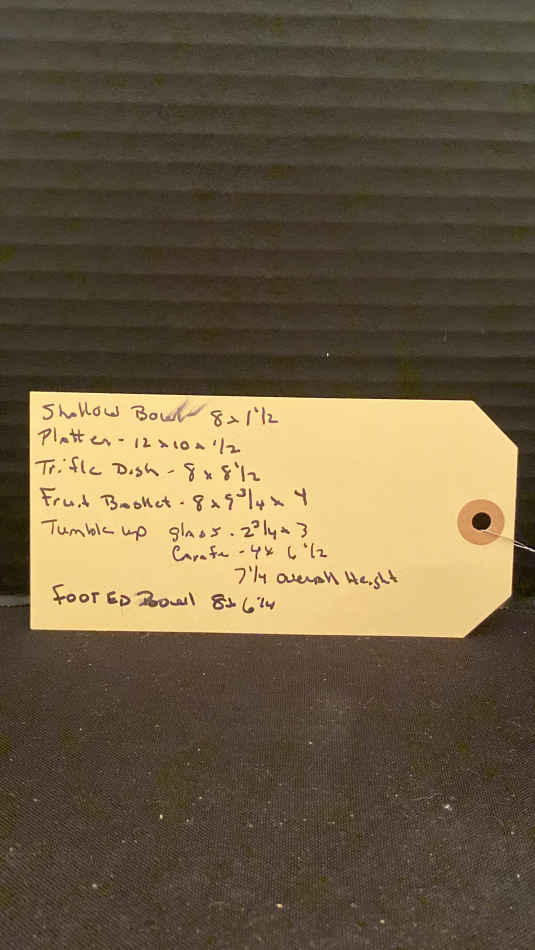 Shallow Bowl 8 x 1 1/2
Platter - 12 x 10 x 1/2
Trifle Dish - 8 x 8 1/2
Fruit Basket - 8 x 9 3/4 x 4
Tumble up glass - 2 3/4 x 3
Carafe - 4 x 6 1/2
7 1/4 overall Height
FOOTED Bowl 8 x 6 1/4